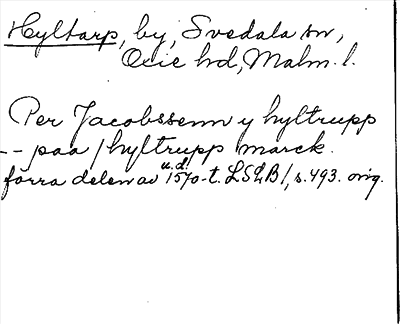 Hyltarp, by, Svedala sn,
Oxie hd, Malm. l.
Per Jacobssenn y hyltrupp
-- paa / hyltrupp marck.
u.d.
förra delen av 1570-t. LSLB 1, s. 493. orig.